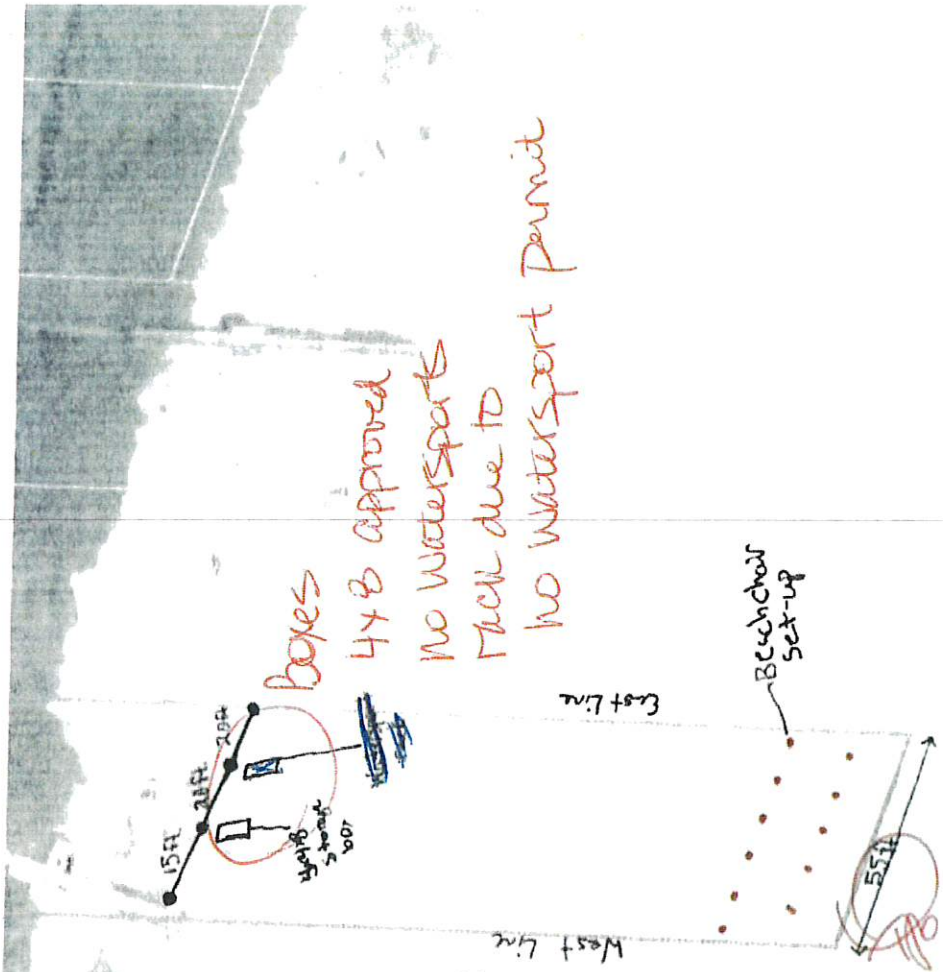 boxes
4x8 approved
no watersports
rack due to
no watersport permit
15ft
20ft
20ft
storage
box
East Line
West Line
Beachchair
set-up
55ft